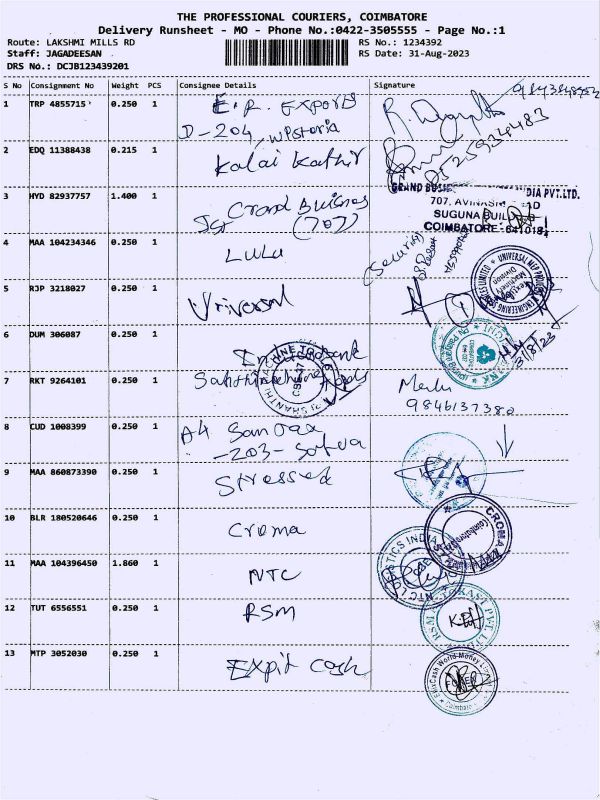 THE PROFESSIONAL COURIERS, COIMBATORE
Delivery Runsheet - MO - Phone No.:0422-3505555 - Page No.:1
Route: LAKSHMI MILLS RD RS No.: 1234392
Staff: JAGADEESAN RS Date: 31-Aug-2023
DRS No.: DCJB123439201
S No Consignment No Weight PCS Consignee Details Signature
1 TRP 4855715 0.250 1 E.R. Exports
D-204, Westoria
2 EDQ 11388438 0.215 1 Kalai Kathir
3 HYD 82937757 1.400 1 Grand Buisnes
(707)
GRAND BUSI DIA PVT.LTD.
707, AVINASHI AD
SUGUNA BUIL
COIMBATORE-641018
4 MAA 104234346 0.250 1 LuLu
(Security)
5 RJP 3218027 0.250 1 Universal
6 DUM 306087 0.250 1
31/8/23
7 RKT 9264101 0.250 1
9846137380
8 CUD 1008399 0.250 1 A4 San Tax
-203-
9 MAA 860873390 0.250 1 Stressed
10 BLR 180520646 0.250 1 Croma
CROMA
11 MAA 104396450 1.860 1 NTC
NTC LOGISTICS INDIA
12 TUT 6556551 0.250 1 RSM
13 MTP 3052030 0.250 1 Expit Cash